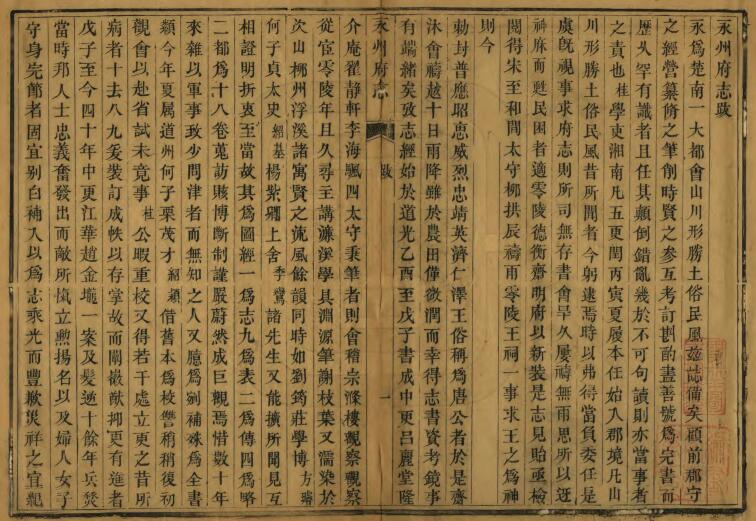 永州府志跋
永爲楚南一大都會山川形勝土俗民風茲誌備矣顧前郡守
之經營纂脩之筆創時賢之參互考訂斟酌盡善號爲完書而
歷久罕有識者且任其顛倒錯亂幾於不可句讀則亦當事者
之責也桂學東湘南凡五更閏丙寅夏履本任始入郡境凡山
川形勝土俗民風昔所聞者今躬逮焉時以弗得當負委任是
虞旣視事求府志則所司無存書會旱久屢禱無雨思所以迓
神庥而甦民困者適零陵德衡齋明府以新裝是志見貽亟檢
閱得宋至和間太守柳拱辰禱雨零陵王祠一事求王之爲神
則今
勅封普應昭惠威烈忠靖英濟仁澤王俗稱爲唐公者於是齋
沐會禱越十日雨降雖於農田僅微潤而幸得志書資考鏡事
有端緒矣攷志經始於道光乙酉至戊子書成中更呂麗堂隆
介庵翟靜軒李海颿四太守秉筆者則會稽宗滌樓觀察觀察
從宦零陵年且久尋主講濂溪學具淵源筆謝枝葉又濡染於
次山柳州浮溪諸寓賢之流風餘韻同時如劉筠莊學博方璿
何子貞太史紹基楊紫卿上舍季鸞諸先生又能擴所聞見互
相證明折衷至當故其爲圖經一爲志九爲表二爲傳四爲略
二都爲十八卷蒐訪賅博斷制謹嚴蔚然成巨觀焉惜數十年
來雜以軍事政少問津者而無知之人又應爲剜補殊爲全書
纇今年夏属道州何子栗茂才紹纇借舊本爲校讐稍稍復初
觀會以赴省試未竟事桂公暇重校又得若干處立更之昔所
病者十去八九爰裝訂成帙以存掌故而闡徽猷抑更有進者
戊子至今四十年中更江華趙金壠一案及髮逆十餘年兵燹
當時邦人士忠義奮發出而敵所愾立勲揚名以及婦人女子
守身完節者固宜别白補入以爲志乘光而豐歉災祥之宜紀
永州府志
跋
一